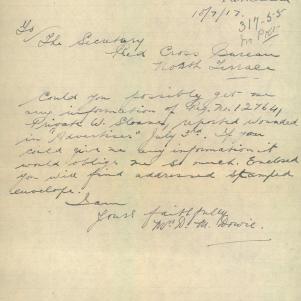 10/7/17.
317-5-5
To
The Secretary
Red Cross Bureau
North Terrace
Could you possibly get me
any information of Reg. No. 12764,
Private W. Sloane, reported wounded
in "Advertiser" July 3rd. If you
could give me any information it
would oblige me so much. Enclosed
you will find addressed stamped
envelope.
I am
Yours faithfully
Mrs D. M. Dowie.